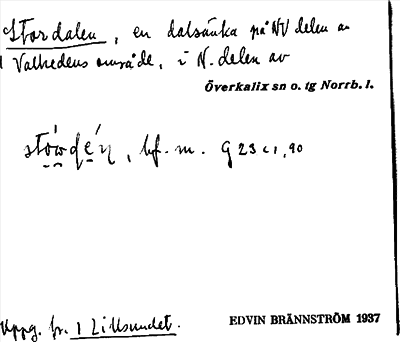 Stordalen, en dalsänka på NV delen av
Valhedens område, i N. delen av
Överkalix sn o. tg Norrb. l.
bf. m. G 23 c 1, 90
Uppg. fr. 1 Lillsundet.
EDVIN BRÄNNSTRÖM 1937